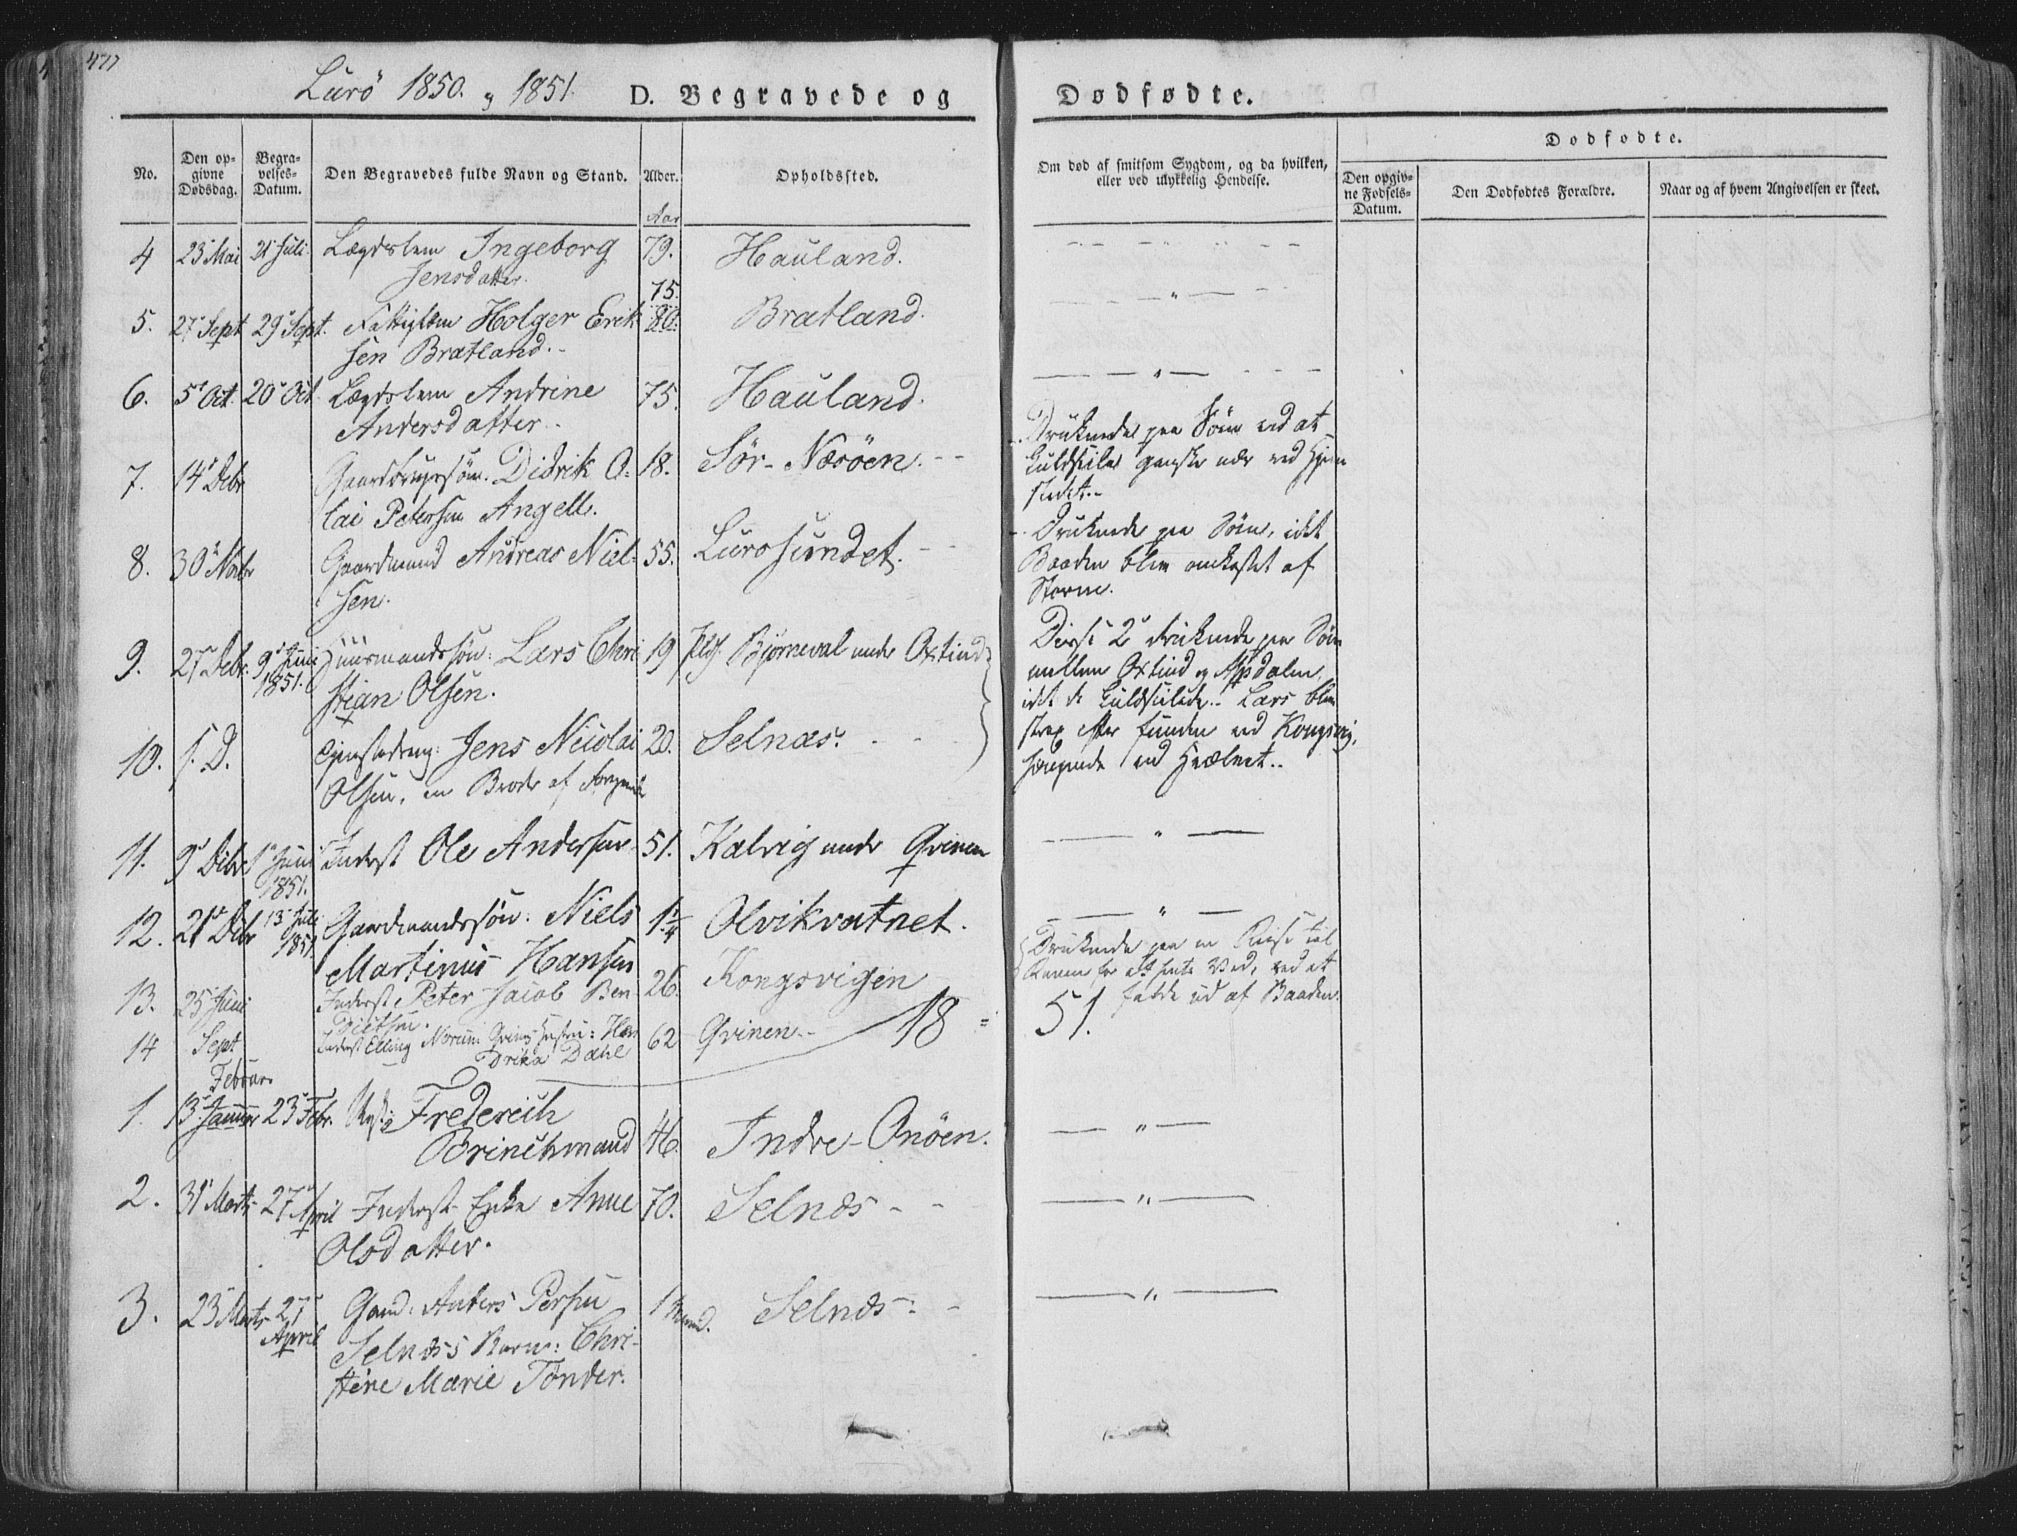 477
Lurö 1850. og 1851.
D. Begravede og Dødfødte.
No.
Den opgivne Dødsdag.
Begravelses-Datum.
Den Begravedes fulde Navn og Stand.
Alder.
Opholdssted.
Om død af smitsom Sygdom, og da hvilken,
eller ved ulykkelig Hendelse.
Dødfødte.
Den opgivne Fødsels-Datum.
Den Dødfødtes Forældre.
Naar og af hvem Angivelsen er skeet.
Aar
4 23 Mai 21 Juli Lægdslem Ingeborg 79. Hauland.
Jensdatter.
75.
5. 27 Sept 29 Sept. Fattiglem Holger Erik 80. Bratland.
sen Bratland.
6. 5 Oct. 20 Oct Lægdslem Andrine 75. Hauland.
Andersdatter.
7. 14 Debr Didrik O- 18. Sör-Næsöen.
lai Petersen Angell.
Druknede paa Söen ved at
kuldseile ganske nær ved Hjem
stedet.
8. 30 Novbr Gaardmand Andreas Niel- 55. Lurosundet.
sen.
Druknede paa Söen, idet
Baaden blev omkastet af
Storm.
9. 27 Debr. 9 Juni Lars Chri 19 Bjorneval under Oxtind
1851.
stian Olsen.
Disse 2 druknede paa Söen
mellem Oxtind og Apdalen,
idet de kuldseilede. Lars blev
strax efter funden ved Kongsvig,
hængende ved Hvælvet.
10. s. D. Jens Nicolai 20. Selnæs.
Olsen, en Broder af
11. 9 Debr Juni Inderst Ole Andersen 51. Kalvig under Qvinen
1851.
12. 21 Debr 13 Juli Gaardmandssön: Niels 1 1/4 Olvikvatnet.
1851.
Martinus Hansen
13. 25 Juni Inderst Peter Jacob Ben- 26. Kongsvigen
Druknede paa en Reise til
Ranen for at hente Ved, ved at
falde ud af Baaden.
14 Sept Inderst Elling Hen 62 Qvinen
drika Dahl
18 = 51.
Februar
1. 13 Januar 23 Febr. Frederich
Brinchmand 46. Indre-Onöen.
2. 31 Marts 27 April Inderst Enke Anne 70. Selnæs
Olsdatter.
3. 23 Marts 27 Gaard. Anders Persen 1 Maaned. Selnæs
April
Selnæs's Barn: Chri-
stine Marie Tönder.